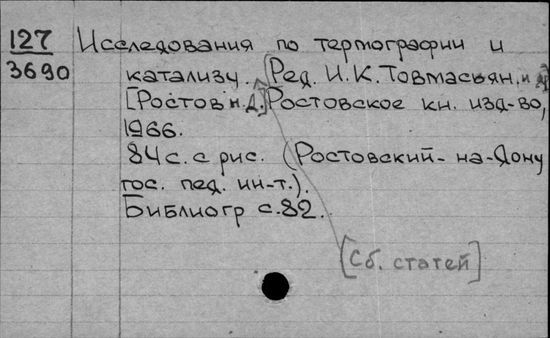 127
3690
Исследования по термографии и
катализу. Ред. И.К. Товмасьян. и др
[Ростов н. Д.] Ростовское кн. изд-во,
1966.
84 с. с рис. (Ростовский-на-Дону
гос. пед. ин-т.).
Библиогр с. 82.
[Сб. статей]